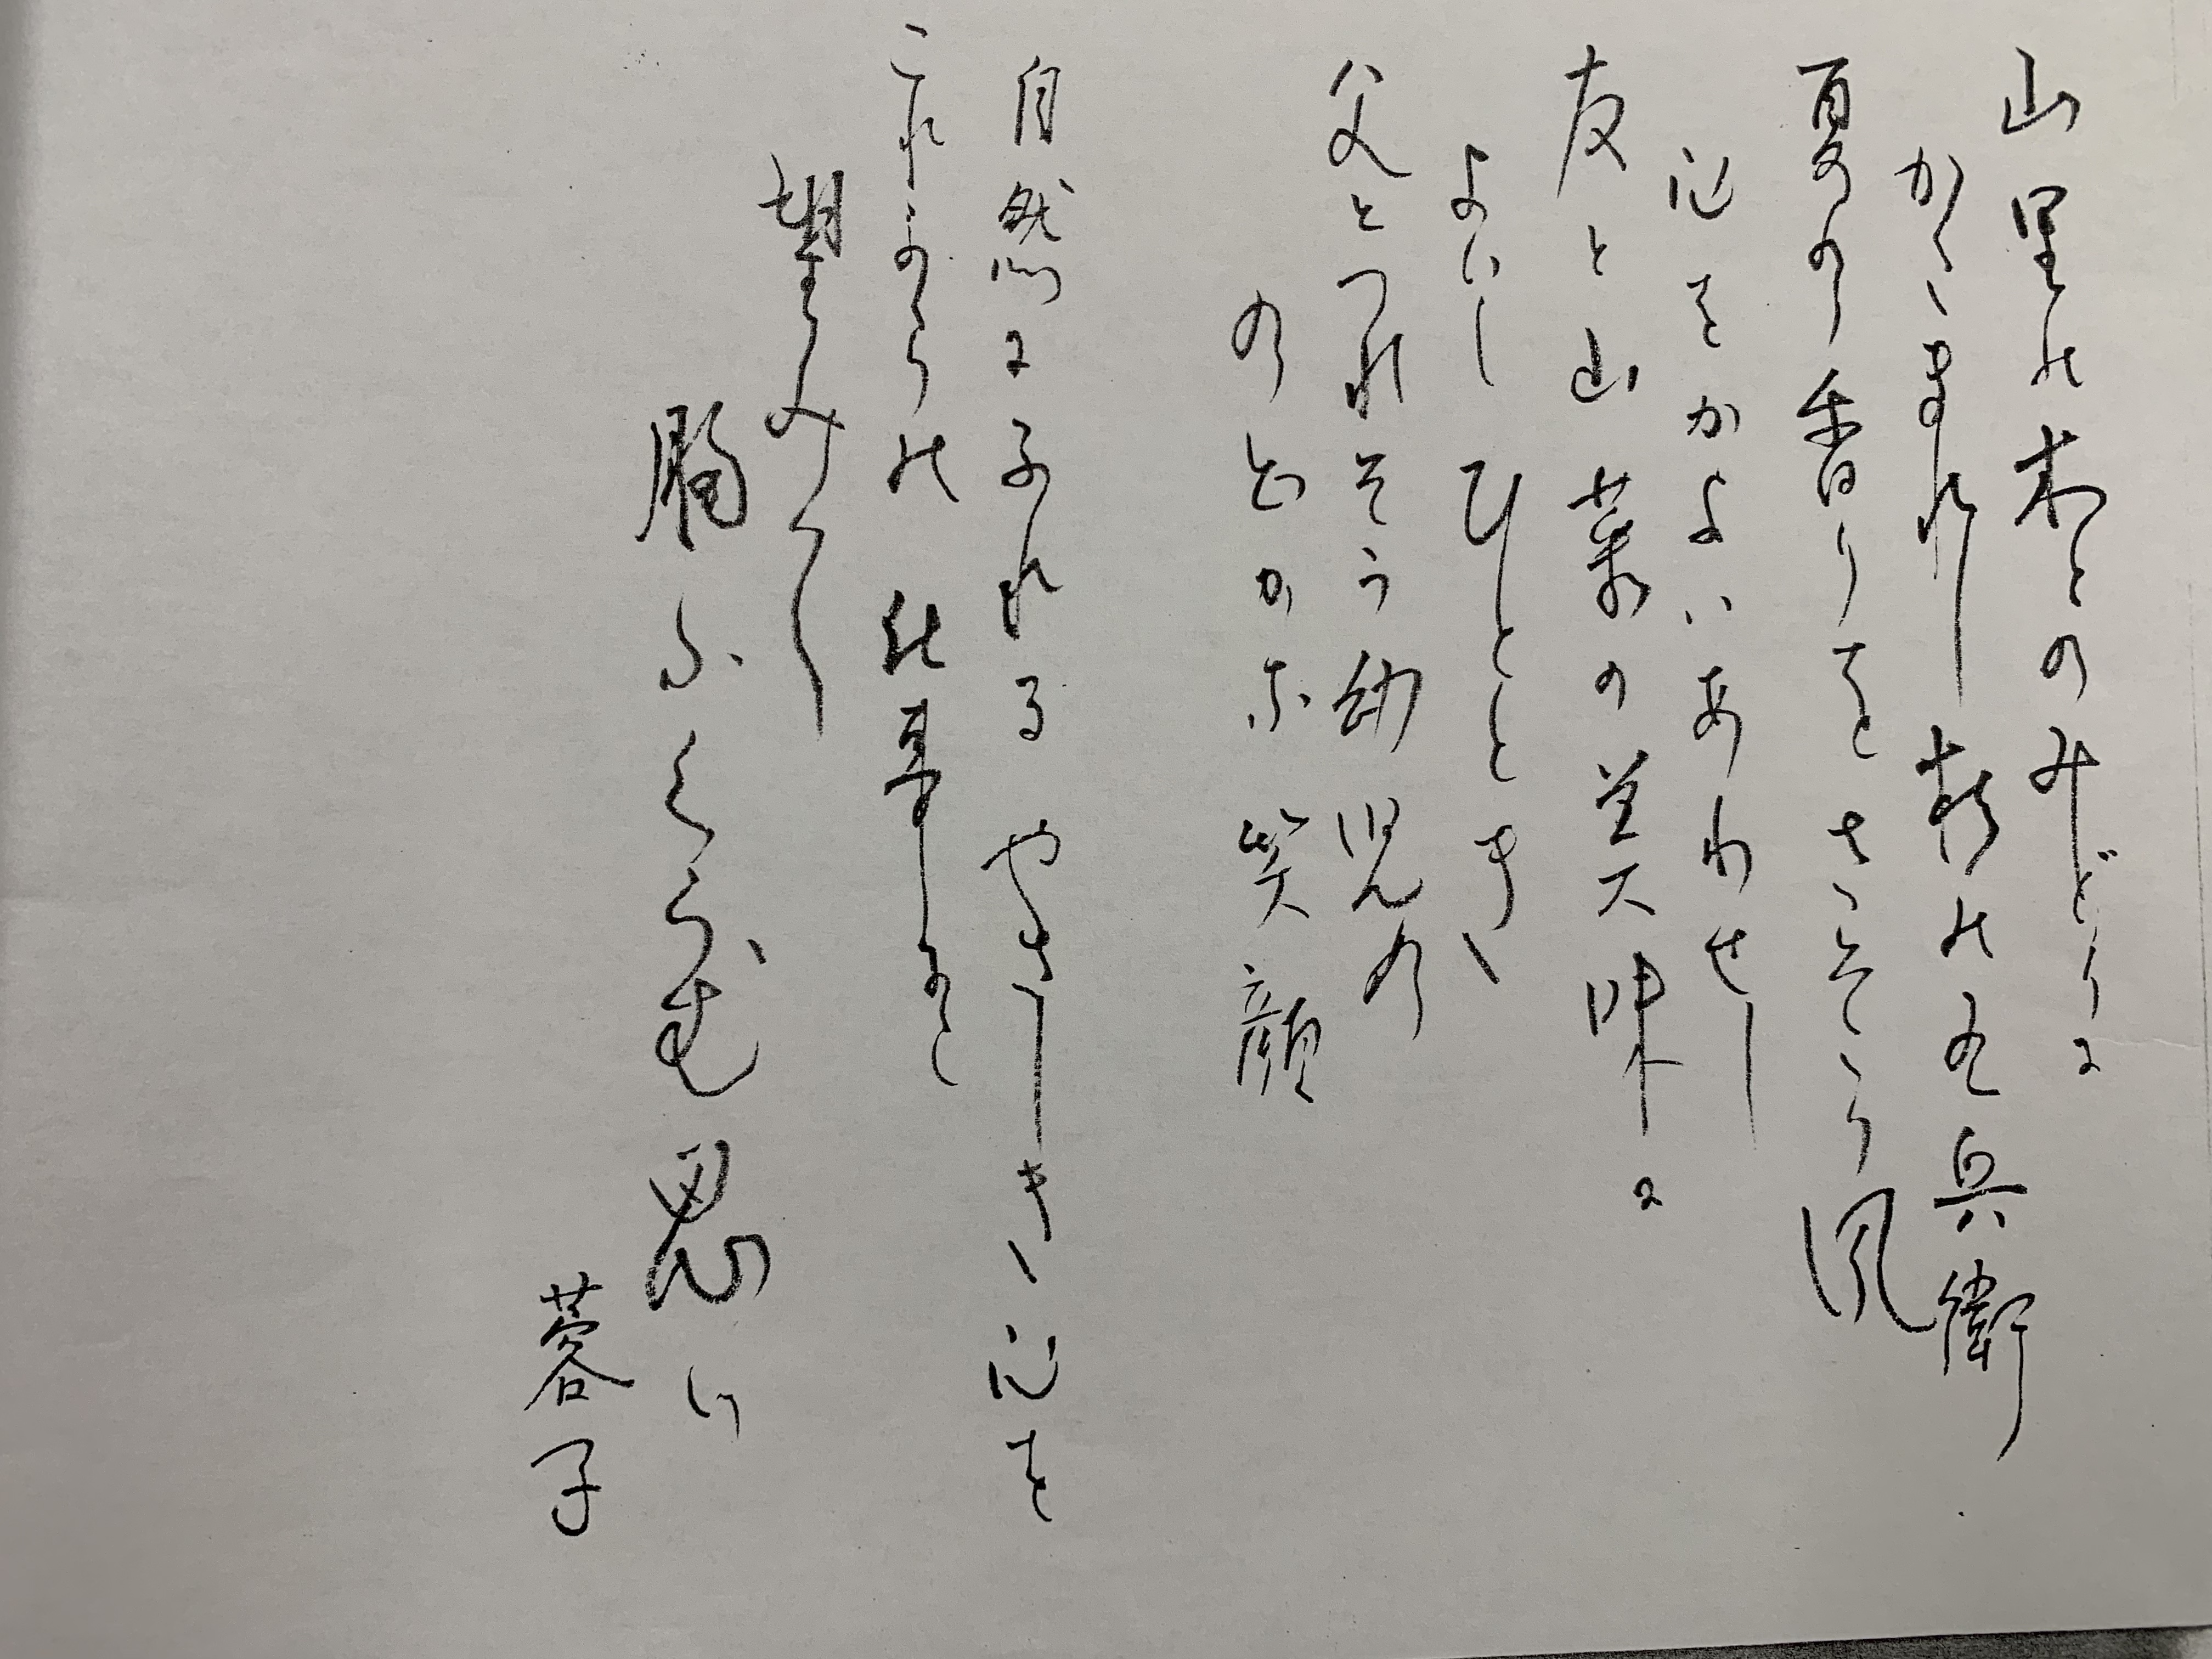 山里の木々のみどりに
かこまれし 新の五兵衛
夏の香りをさそう風
心をかよいあわせし
友と山菜の美味に
よいし ひととき
父とつれそう幼児の
のどかな 笑顔
自然にふれる やさしき心を
これからの仕事にと
望みて
膓ふくらむ 思い
蓉子